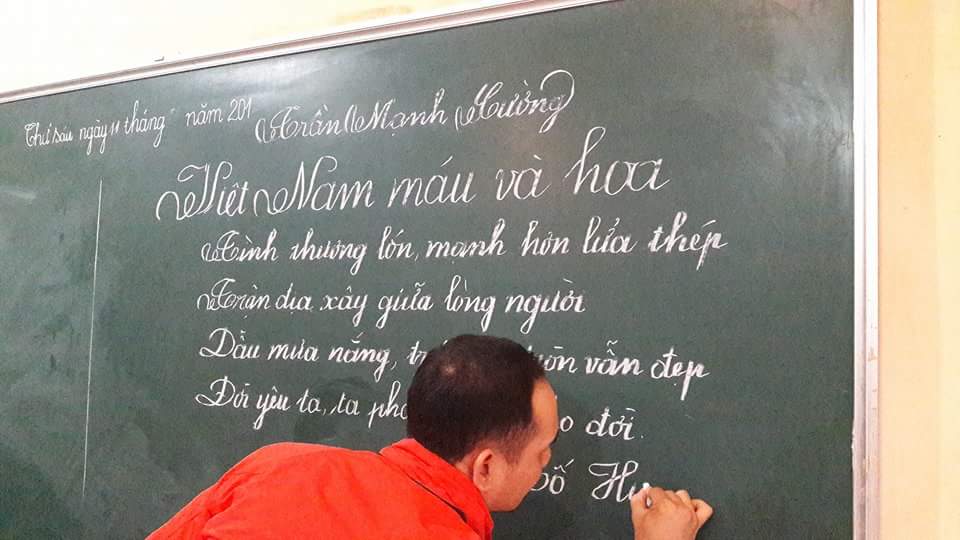 Thứ sáu ngày 11 tháng năm 201
Trần Mạnh Cường
Việt Nam máu và hoa
Tình thương lớn, mạnh hơn lửa thép
Trận địa xây giữa lòng người
Dầu mưa nắng, vẫn đẹp
Đời yêu ta, ta đời.